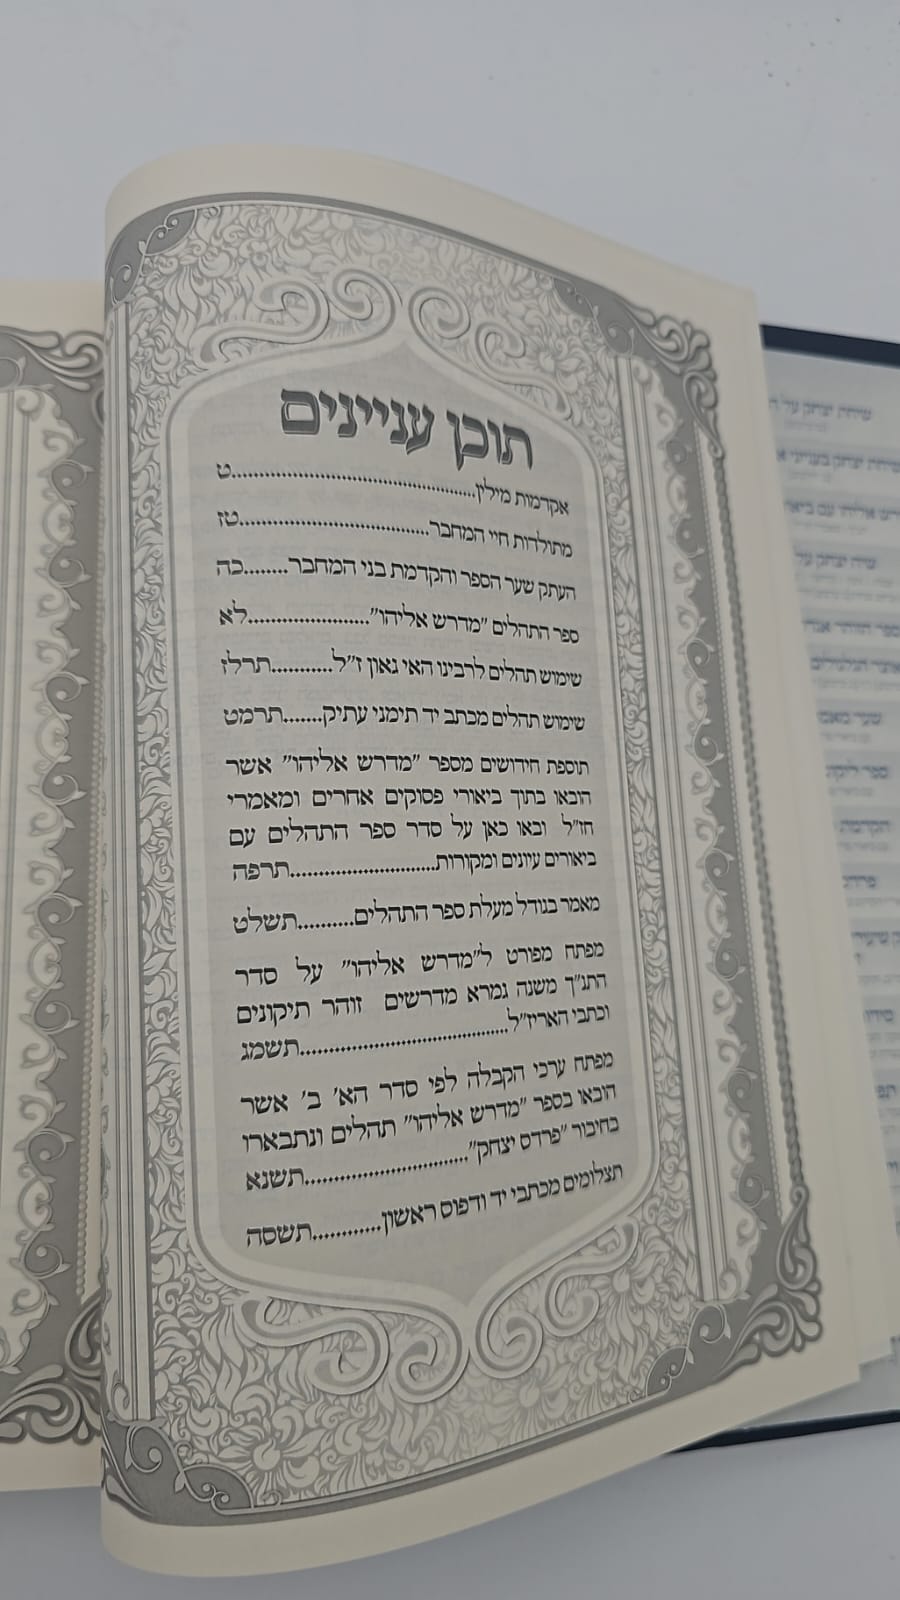 תוכן עניינים
אקדמות מילין........................................................ט
מתולדות חיי המחבר..................................טז
העתק שער הספר והקדמת בני המחבר........כה
ספר התהלים "מדרש אליהו"......................לא
שימוש תהלים לרבינו האי גאון ז"ל...........תרלז
שימוש תהלים מכתב יד תימני עתיק.......תרמט
תוספת חידושים מספר "מדרש אליהו" אשר
הובאו בתוך ביאורי פסוקים אחרים ומאמרי
חז"ל ובאו כאן על סדר ספר התהלים עם
ביאורים עיונים ומקורות..........................תרפה
מאמר בגודל מעלת ספר התהלים..........תשלט
מפתח מפורט ל"מדרש אליהו" על סדר
התנ"ך משנה גמרא מדרשים זוהר תיקונים
וכתבי האריז"ל.....................................תשמג
מפתח ערכי הקבלה לפי סדר הא' ב' אשר
הובאו בספר "מדרש אליהו" תהלים ונתבארו
בחיבור "פרדס יצחק".............................תשנא
תצלומים מכתבי יד ודפוס ראשון............תשסה
שיחת יצחק על
שיחת יצחק בעניני
שיח יצחק על